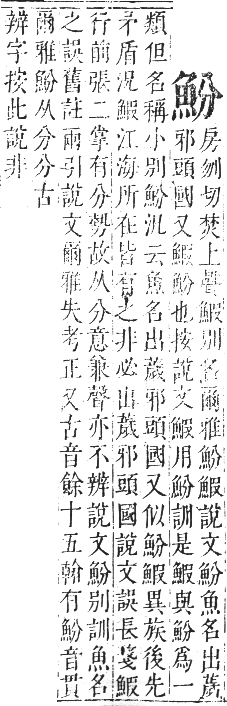 魵
房刎切焚上聲鰕別名爾雅魵鰕說文魵魚名出薉
邪頭國又鰕魵也按說文鰕用魵訓是鰕與魵爲一
類但名稱小別魵汎云魚名出薉邪頭國又似魵鰕異族後先
矛盾況鰕江海所在皆有之非必出薉邪頭國說文誤長箋鰕
行前張二掌有分勢故从分意兼聲亦不辨說文魵別訓魚名
之誤舊註兩引說文爾雅失考正又古音餘十五翰有魵音貫
爾雅魵从分分古
辨字按此說非